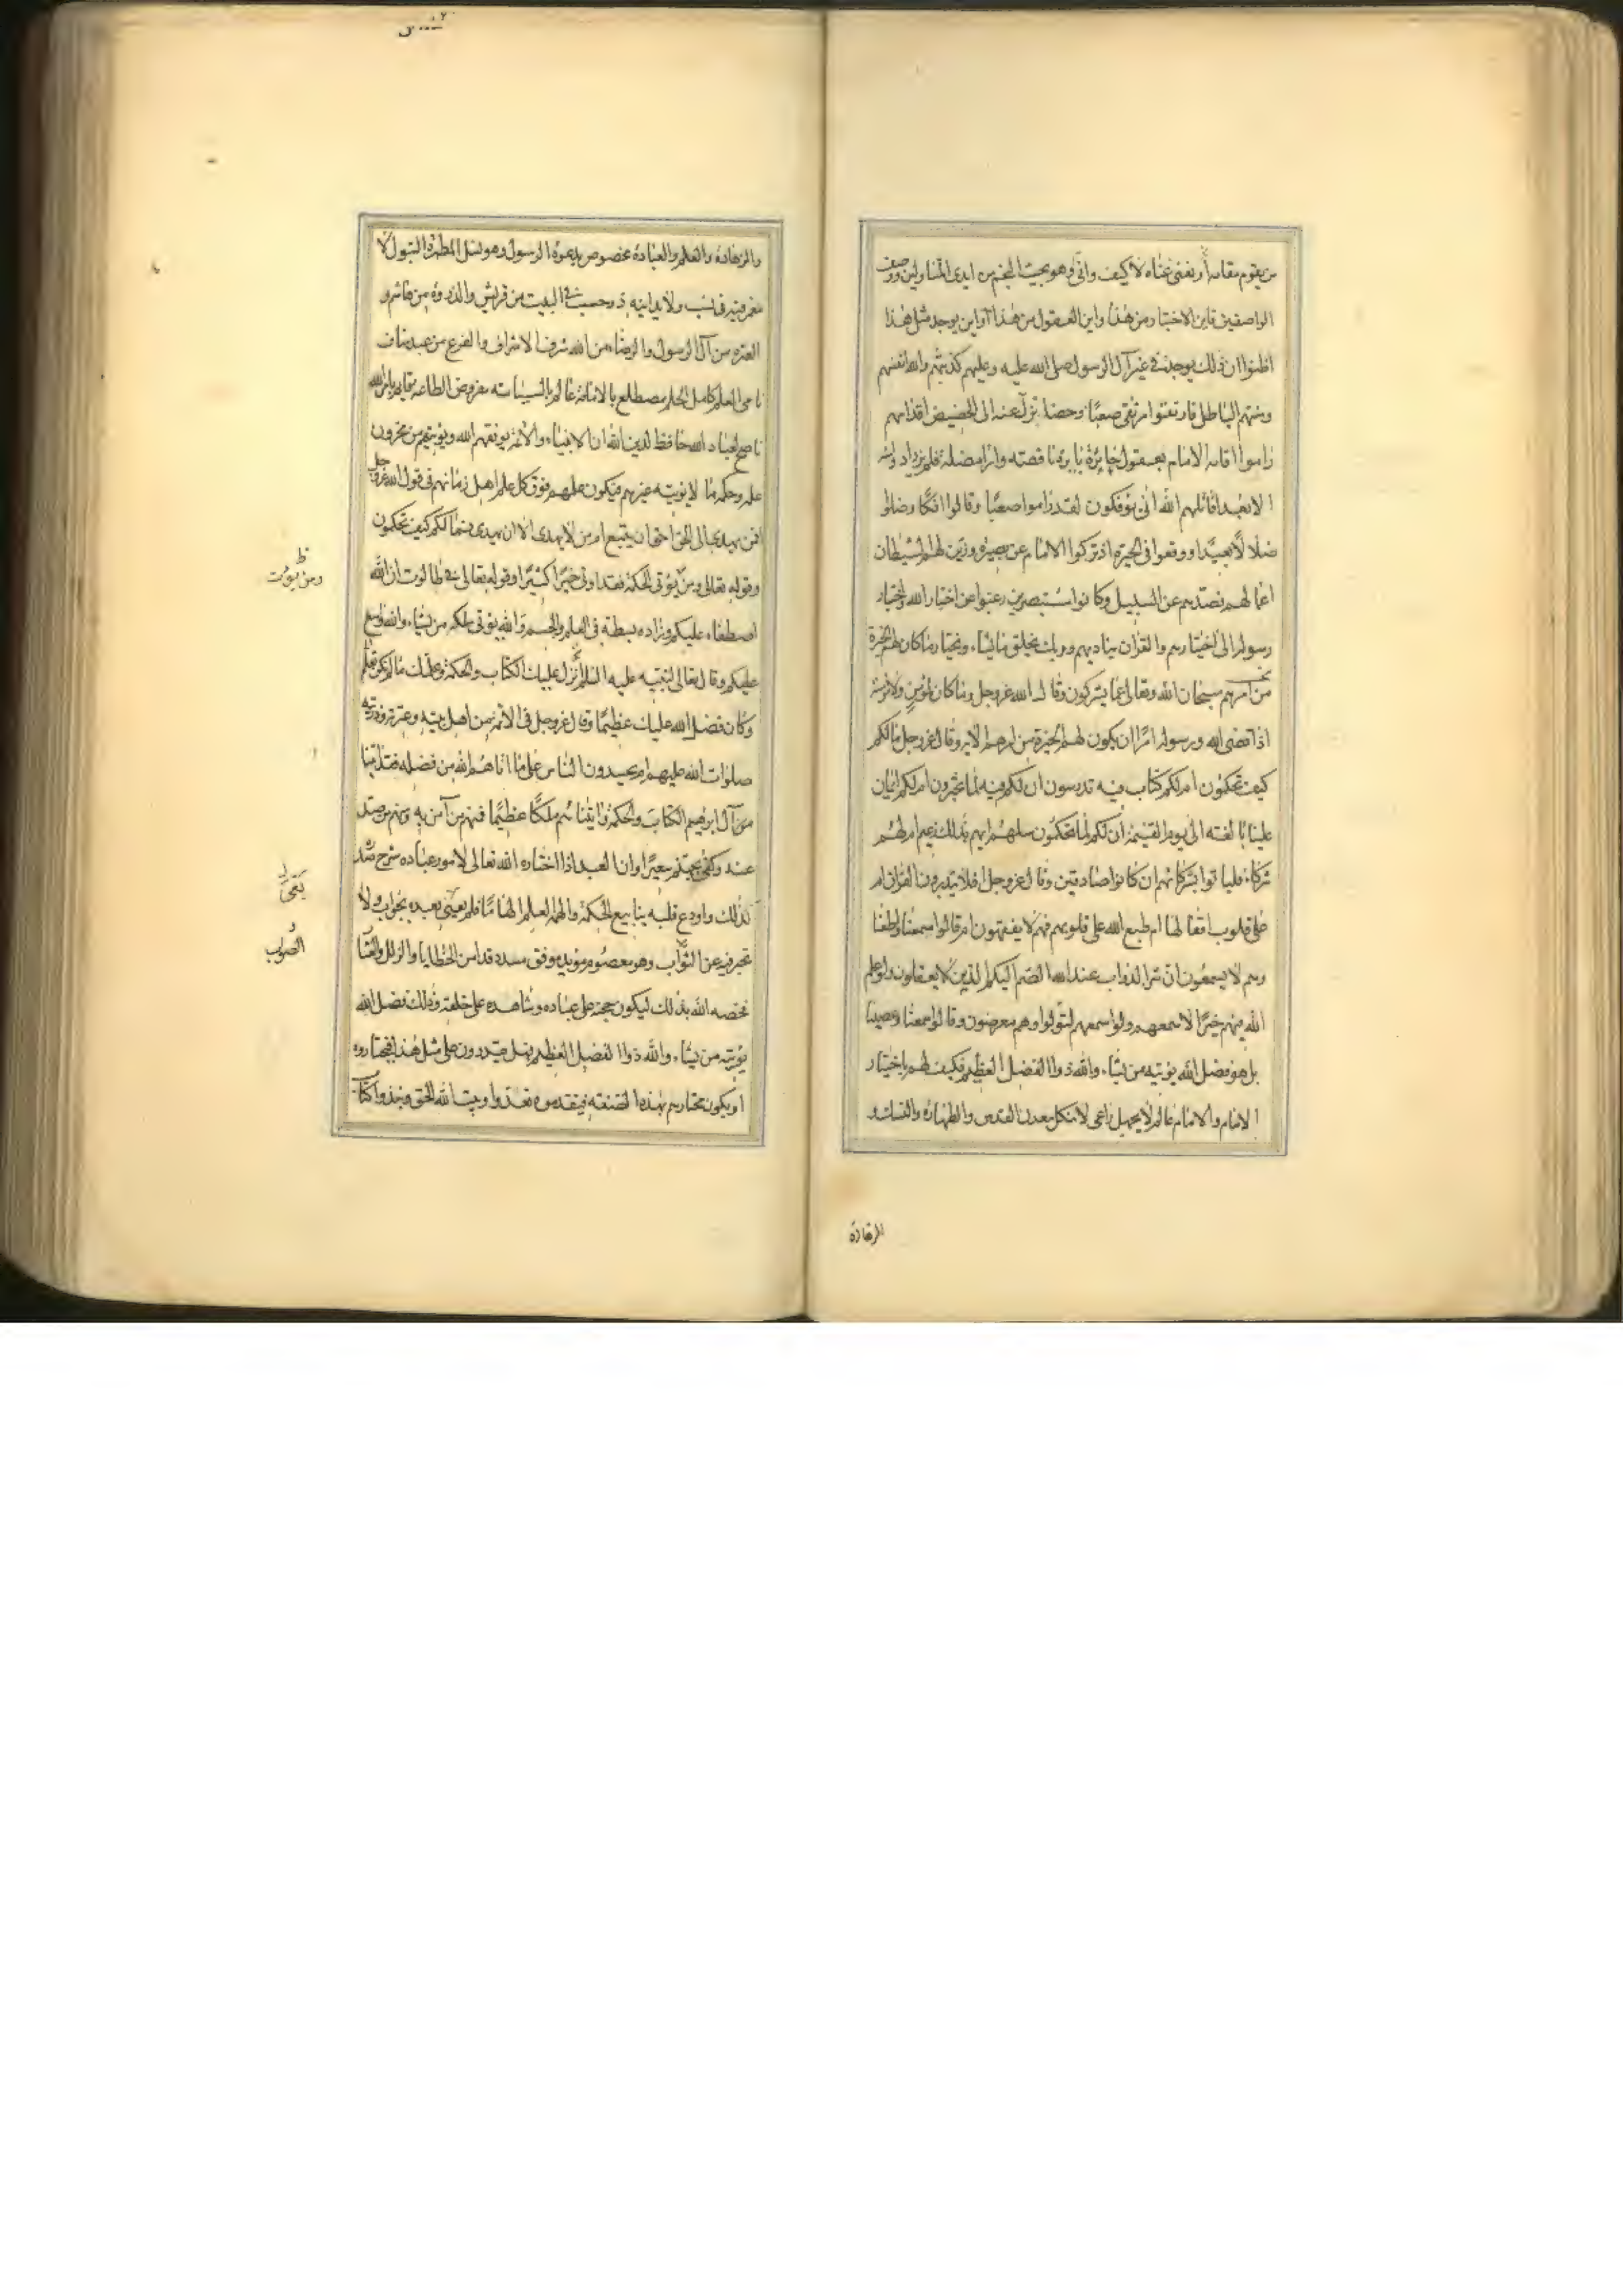 من يقوم مقامه أو يغني غناه لا كيف وأنى وهو بحيث النجم من ايدى المتناولين ووصف
الواصفين فاين الاختيار من هذا واين العقول من هذا أو اين يوجد مثل هذا
اظنوا ان ذلك يوجد في غير آل الرسول صلى الله عليه وعليهم كذبتهم والله انفسهم
ومنتهم الباطل فارتقوا مرتقى صعبًا وحضا تزل عنه الى الحضيض اقدامهم
راموا اقامه الامام بعقول حائرة بايرة ناقصه واراء مضلة فلم يزداد ومنه
الا بعدا قاتلهم الله انى يؤفكون لقد راموا صعبًا وقالوا افكًا وضلوا
ضلالًا بعيدًا ووقعوا فى الحيرة اذ تركوا الامام عن بصيرة وزين لهم الشيطان
اعمالهم فصدهم عن السبيل وكانوا مستبصرين رغبوا عن اختيار الله واختيار
رسوله الى اختيارهم والقران يناديهم وربك يخلق ما يشاء ويختار ما كان لهم الخيرة
من امرهم سبحان الله وتعالى عما يشركون وقال الله عز وجل وما كان لمؤمن ولا مؤمنة
اذا قضى الله ورسوله امرًا ان يكون لهم الخيرة من امرهم الاية وقال عز وجل ما لكم
كيف تحكمون ام لكم كتاب فيه تدرسون ان لكم فيه لما تخيرون ام لكم ايمان
علينا بالغة الى يوم القيمة ان لكم لما تحكمون سلهم ايهم بذلك زعيم ام لهم
شركاء فلياتوا بشركائهم ان كانوا صادقين وقال عز وجل افلا يتدبرون القران ام
على قلوب اقفالها ام طبع الله على قلوبهم فهم لا يفقهون ام قالوا سمعنا واطعنا
وهم لا يسمعون ان شر الدواب عند الله الصم البكم الذين لا يعقلون ولو علم
الله فيهم خيرًا لاسمعهم ولو اسمعهم لتولوا وهم معرضون وقالوا سمعنا وعصينا
بل هو فضل الله يؤتيه من يشاء والله ذو الفضل العظيم فكيف لهم باختيار
الامام والامام عالم لا يجهل راعى لا ينكل معدن القدس والطهارة والنسك و
الزهادة
والزهادة والعلم والعبادة مخصوص بدعوة الرسول وهو نسل المطهرة البتول لا
مغمز فيه في نسب ولا يدانيه ذو حسب في البيت من قريش والذروة من هاشم و
العترة من آل الرسول والرضا من الله شرف الاشراف والفرع من عبد مناف
نامى العلم كامل الحلم مضطلع بالامامة عالم بالسياسه مفروض الطاعه قايم بامر الله
ناصح لعباد الله حافظ لدين الله ان الانبياء والائمة يوفقهم الله ويؤتيهم من مخزون
علمه وحكمه ما لا يؤتيه غيرهم فيكون علمهم فوق كل علم اهل زمانهم فى قول الله عز وجل
افمن يهدى الى الحق احق ان يتبع امن لا يهدى الا ان يهدى فما لكم كيف تحكمون
وقوله تعالى ومن يؤتى الحكمة فقد اوتى خيرًا كثيرًا وقوله تعالى في طالوت ان الله
ظ
ومن يؤت
اصطفاه عليكم وزاده بسطة فى العلم والجسم والله يؤتى ملكه من يشاء والله واسع
عليكم وقال تعالى لنبيه عليه السلم انزل عليك الكتاب والحكمة وعلمك ما لم تكن تعلم
وكان فضل الله عليك عظيمًا وقال عز وجل فى الائمة من اهل بيته وعترته وذريته
صلوات الله عليهم ام يحسدون الناس على ما اتاهم الله من فضله فقد اتينا
آل ابرهيم الكتاب والحكمة واتيناهم ملكًا عظيمًا فمنهم من آمن به ومنهم من صد
عنه وكفى بجهنم سعيرًا وان العبد اذا اختاره الله تعالى لامور عباده شرح صدره
لذلك واودع قلبه ينابيع الحكمة والهمه العلم الهامًا فلم يعيى بعده بجواب ولا
تحير فيه عن الثواب وهو معصوم مؤيد موفق مسدد قد امن الخطايا والزلل والعثار
الصواب
يخصه الله بذلك ليكون حجته على عباده وشاهده على خلقه وذلك فضل الله
يؤتيه من يشاء والله ذو الفضل العظيم فهل يقدرون على مثل هذا فيختاروه
او يكون مختارهم بهذه الصفة فيقدموه تعدوا وبيت الله الحق ونبذوا كتاب